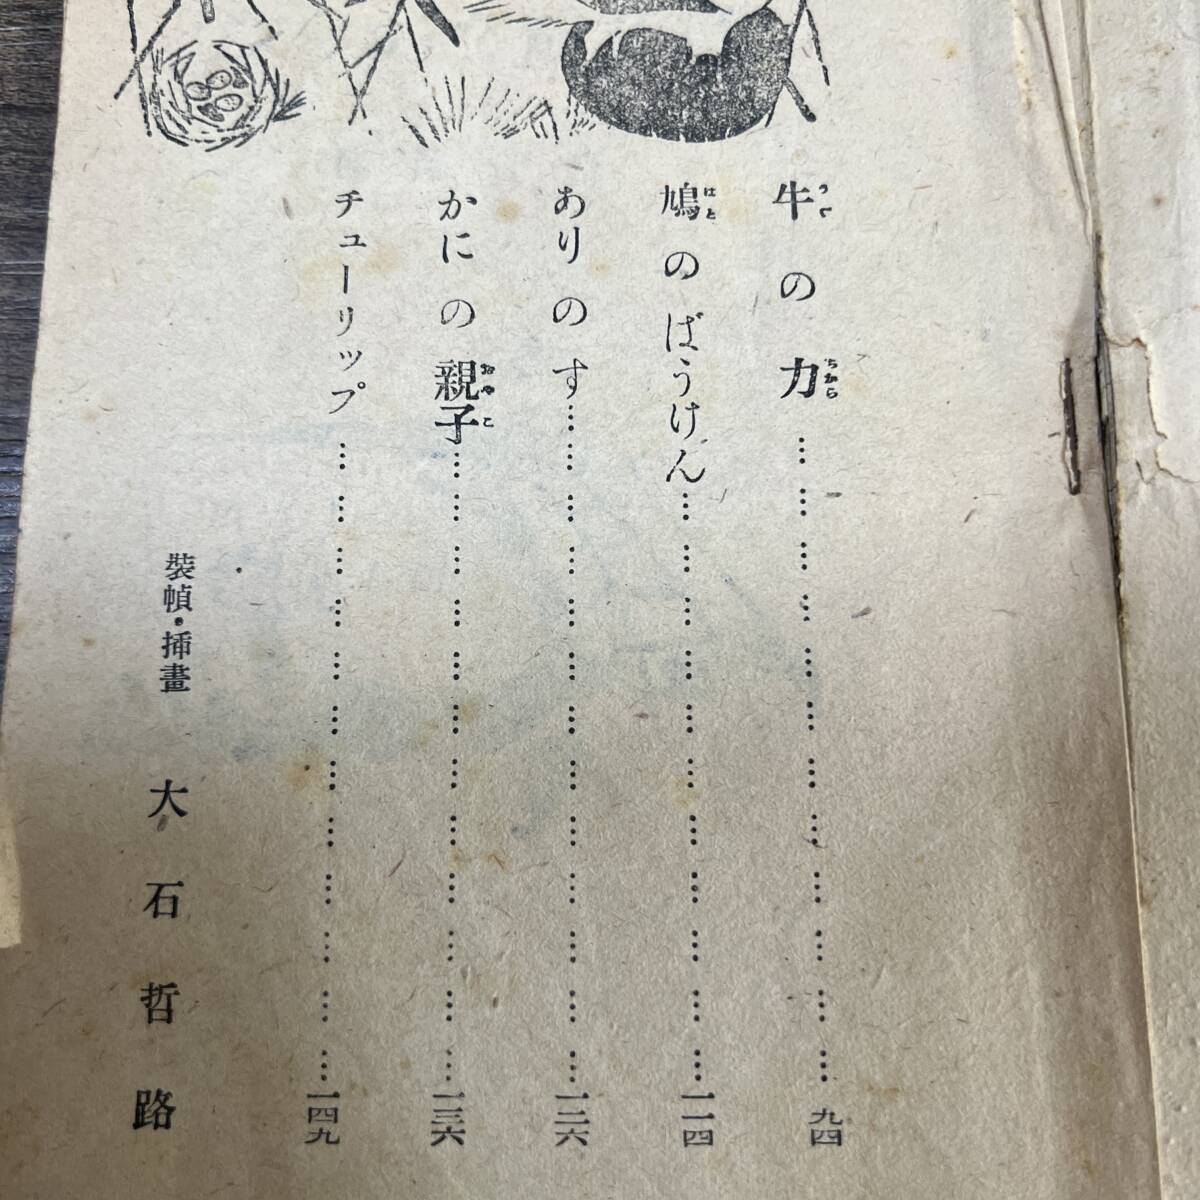 牛の力……………………………………九四
鳩のばうけん……………………………………一一四
ありのす……………………………………一二六
かにの親子……………………………………一三六
チューリップ……………………………………一四九
裝幀・挿畫 大石哲路